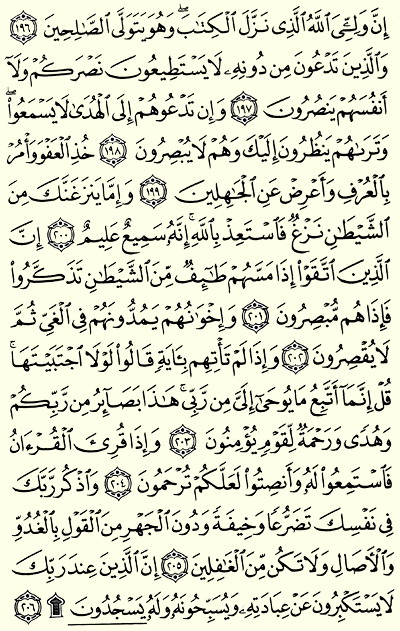 إِنَّ وَلِـِّۧىَ ٱللَّهُ ٱلَّذِى نَزَّلَ ٱلْكِتَٰبَ ۖ وَهُوَ يَتَوَلَّى ٱلصَّٰلِحِينَ ١٩٦
وَٱلَّذِينَ تَدْعُونَ مِن دُونِهِۦ لَا يَسْتَطِيعُونَ نَصْرَكُمْ وَلَآ
أَنفُسَهُمْ يَنصُرُونَ ١٩٧ وَإِن تَدْعُوهُمْ إِلَى ٱلْهُدَىٰ لَا يَسْمَعُوا۟ ۖ
وَتَرَىٰهُمْ يَنظُرُونَ إِلَيْكَ وَهُمْ لَا يُبْصِرُونَ ١٩٨ خُذِ ٱلْعَفْوَ وَأْمُرْ
بِٱلْعُرْفِ وَأَعْرِضْ عَنِ ٱلْجَٰهِلِينَ ١٩٩ وَإِمَّا يَنزَغَنَّكَ مِنَ
ٱلشَّيْطَٰنِ نَزْغٌ فَٱسْتَعِذْ بِٱللَّهِ ۚ إِنَّهُۥ سَمِيعٌ عَلِيمٌ ٢٠٠ إِنَّ
ٱلَّذِينَ ٱتَّقَوْا۟ إِذَا مَسَّهُمْ طَٰٓئِفٌ مِّنَ ٱلشَّيْطَٰنِ تَذَكَّرُوا۟
فَإِذَا هُم مُّبْصِرُونَ ٢٠١ وَإِخْوَٰنُهُمْ يَمُدُّونَهُمْ فِى ٱلْغَىِّ ثُمَّ
لَا يُقْصِرُونَ ٢٠٢ وَإِذَا لَمْ تَأْتِهِم بِـَٔايَةٍ قَالُوا۟ لَوْلَا ٱجْتَبَيْتَهَا ۚ
قُلْ إِنَّمَآ أَتَّبِعُ مَا يُوحَىٰٓ إِلَىَّ مِن رَّبِّى ۚ هَٰذَا بَصَآئِرُ مِن رَّبِّكُمْ
وَهُدًى وَرَحْمَةٌ لِّقَوْمٍ يُؤْمِنُونَ ٢٠٣ وَإِذَا قُرِئَ ٱلْقُرْءَانُ
فَٱسْتَمِعُوا۟ لَهُۥ وَأَنصِتُوا۟ لَعَلَّكُمْ تُرْحَمُونَ ٢٠٤ وَٱذْكُر رَّبَّكَ
فِى نَفْسِكَ تَضَرُّعًا وَخِيفَةً وَدُونَ ٱلْجَهْرِ مِنَ ٱلْقَوْلِ بِٱلْغُدُوِّ
وَٱلْءَاصَالِ وَلَا تَكُن مِّنَ ٱلْغَٰفِلِينَ ٢٠٥ إِنَّ ٱلَّذِينَ عِندَ رَبِّكَ
لَا يَسْتَكْبِرُونَ عَنْ عِبَادَتِهِۦ وَيُسَبِّحُونَهُۥ وَلَهُۥ يَسْجُدُونَ ۩ ٢٠٦